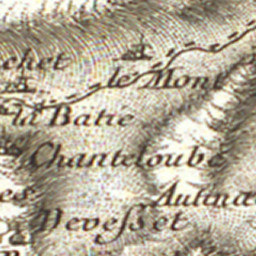 chet
le Mont
la Batie
Chanteloube
Devesset